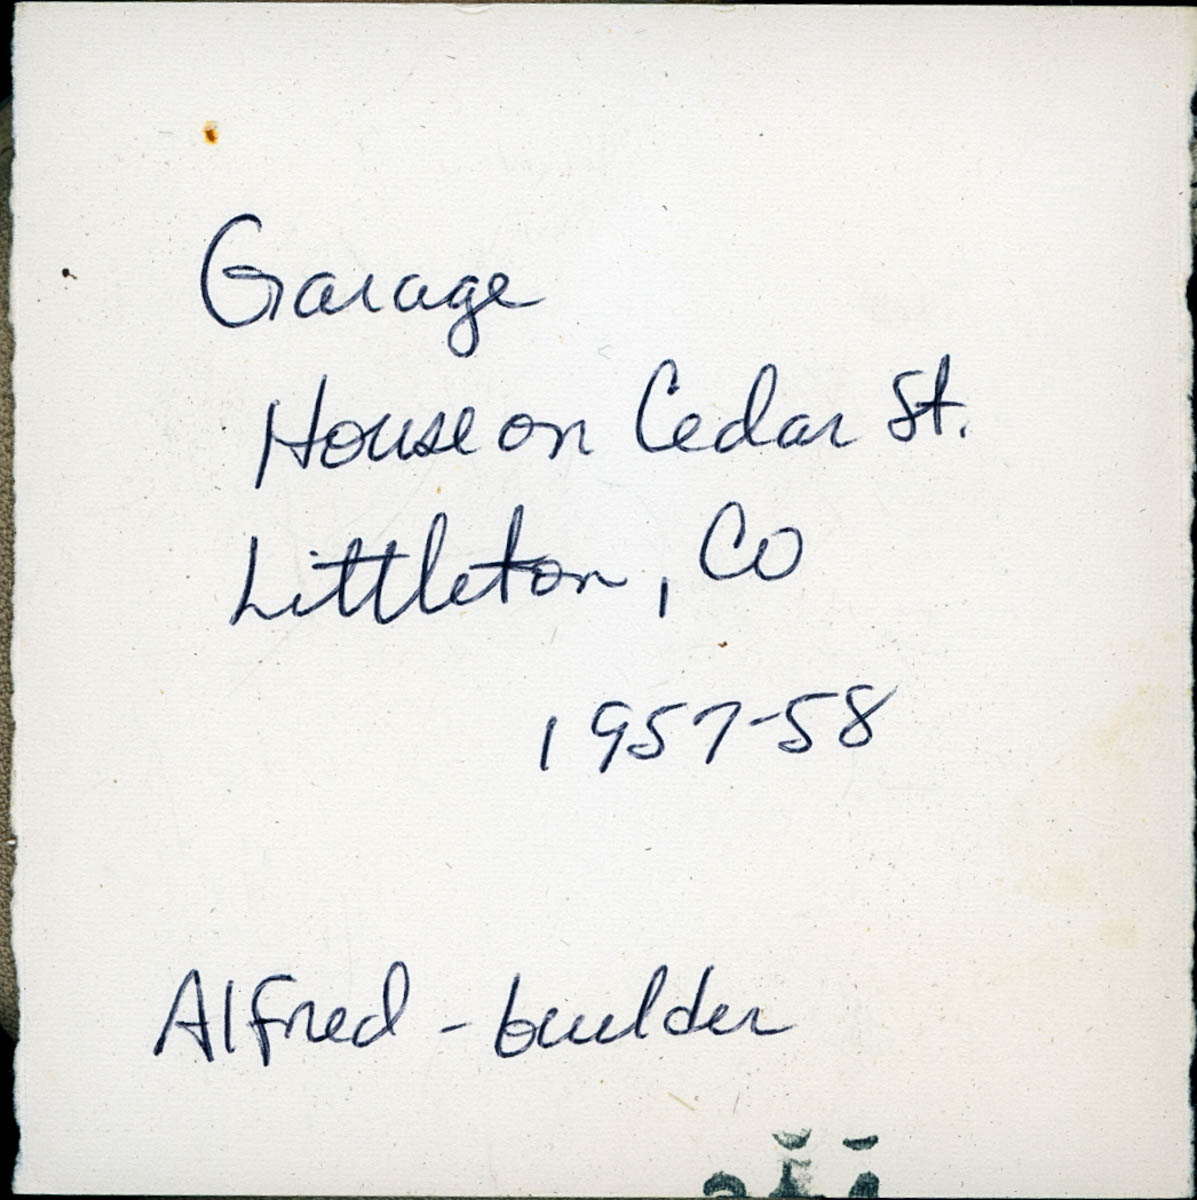 Garage
House on Cedar St.
Littleton, CO
1957-58
Alfred - builder